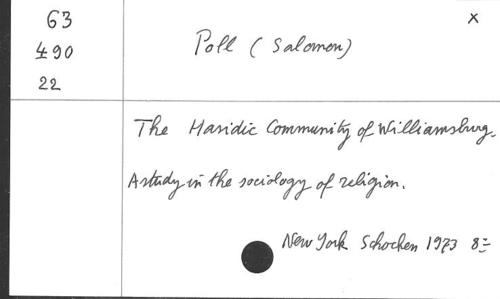 63
490
22
x
Poll ( Salomon)
The Hasidic Community of Williamsburg.
A study in the sociology of religion.
New York Schocken 1973 8=